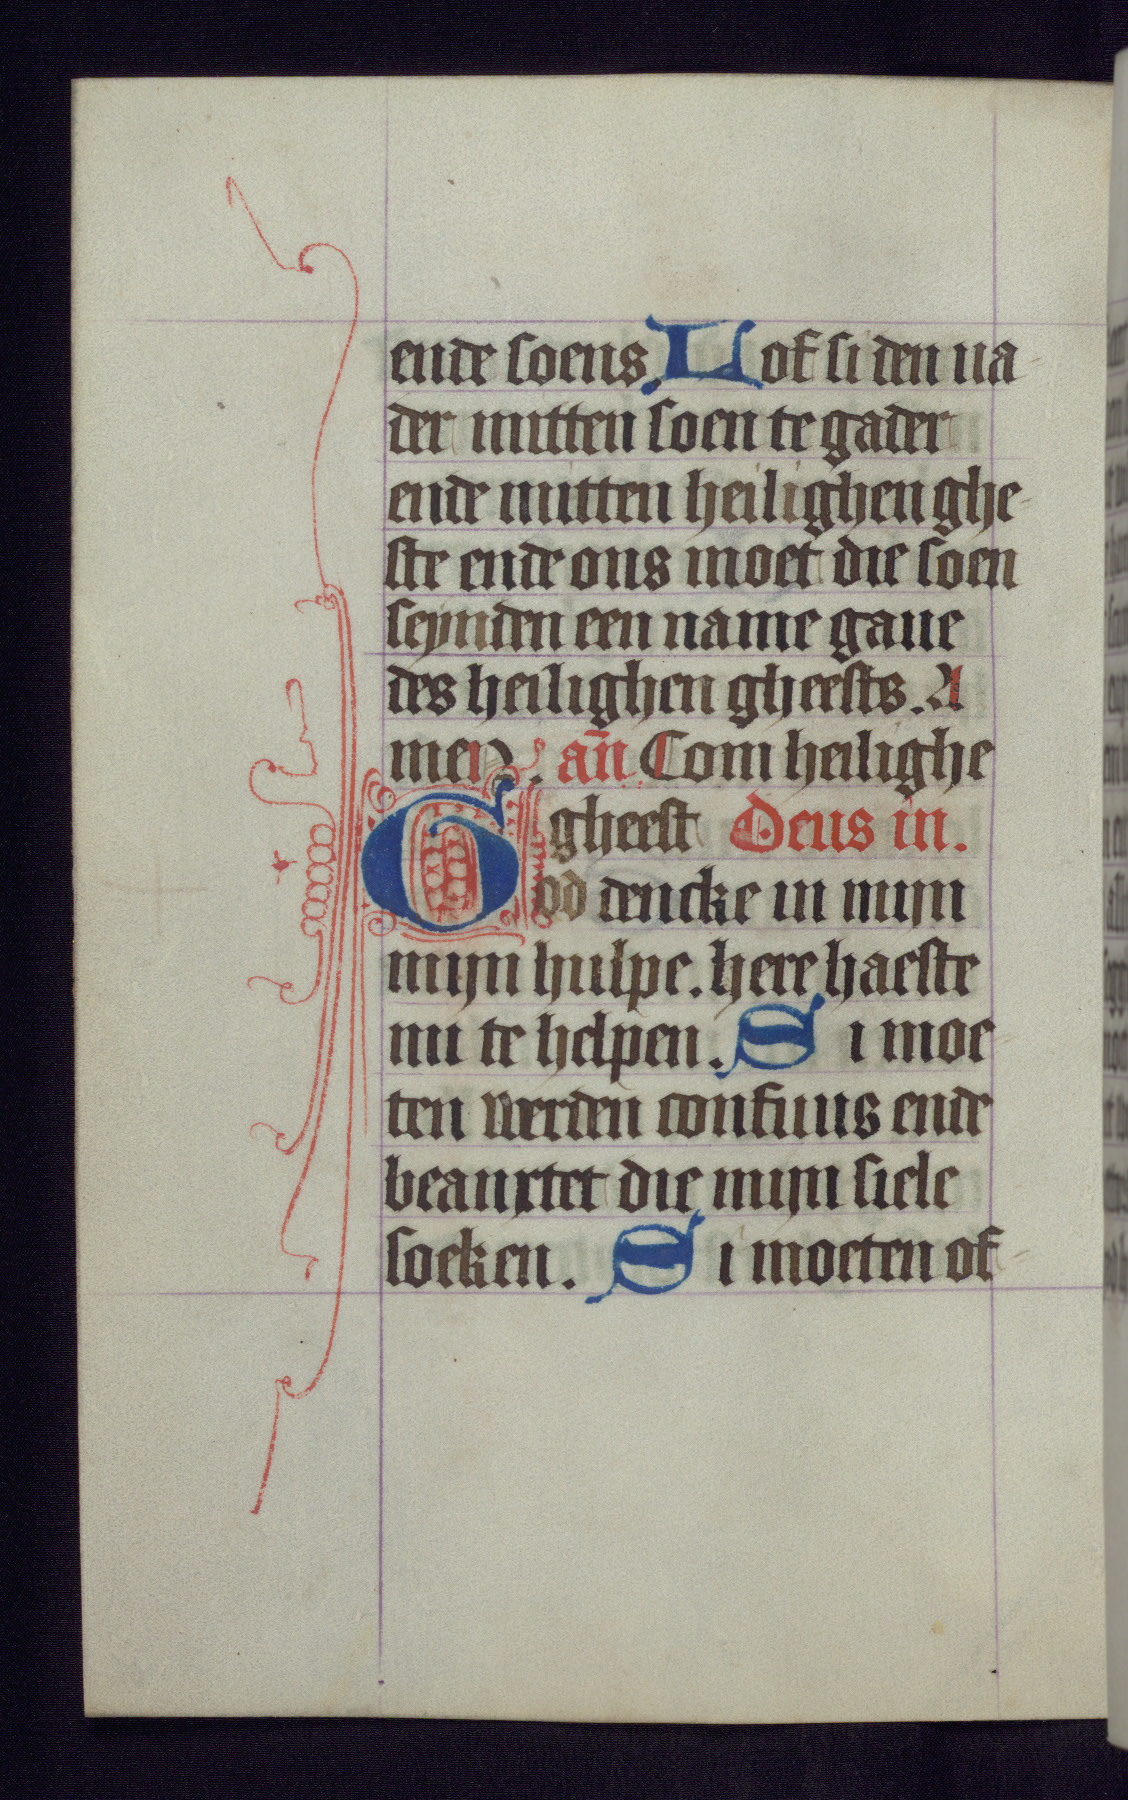 ende soens. Lof si den ua
der mitten soen te gader
ende mitten heilighen ghe
ste ende ons moet die soen
seynden een name gaue
des heilighen gheests. A
men. an̄ Com heilighe
gheest Deus in.
God dencke in mijn
mijn hulpe. here haeste
mi te helpen. Si moe
ten werden confuus ende
beanxtet die mijn siele
soeken. Si moeten of